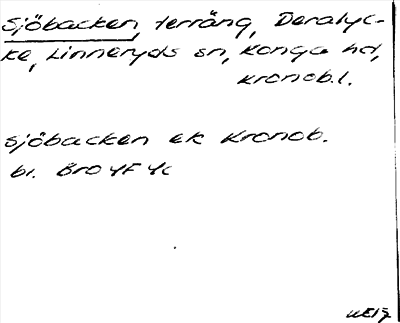 Sjöbacken, terräng, Deralyc-
ke, Linneryds sn, Konga hd,
Kronob.l.
Sjöbacken ek Kronob.
bl. Bro 4F 4c